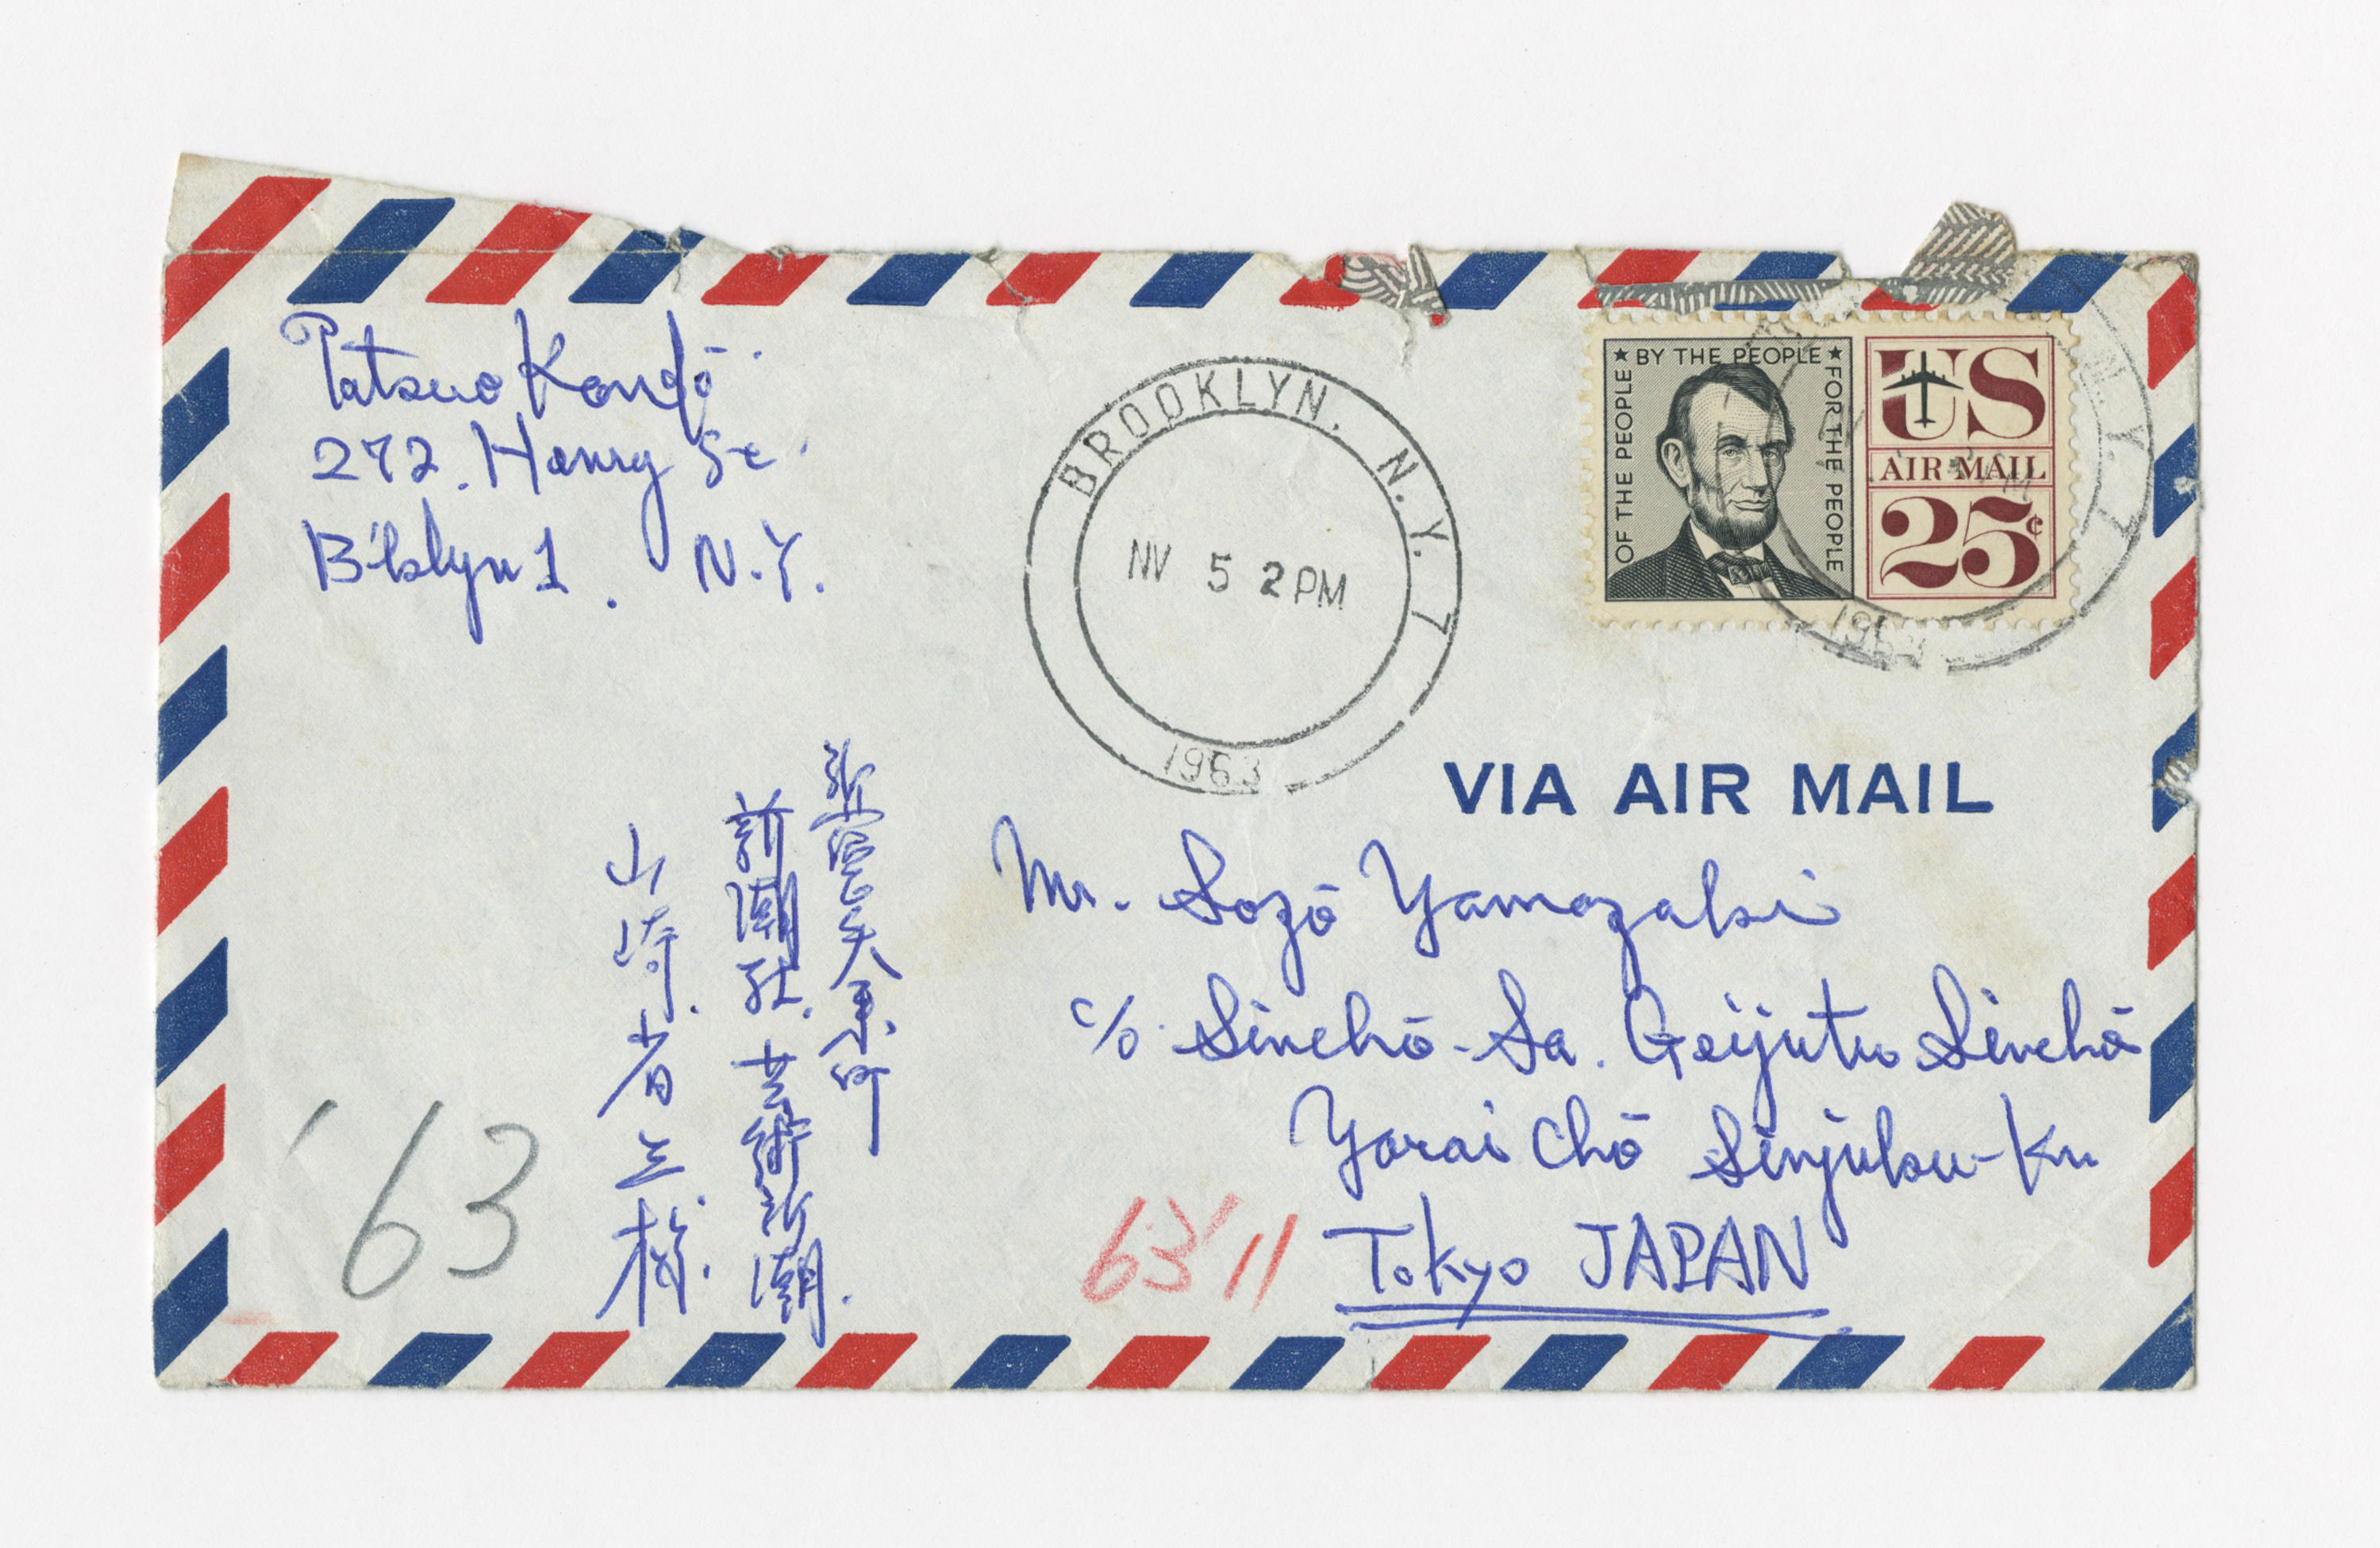 Tatsuo Kondō.
272. Henry St.
B'klyn 1. N.Y.
BROOKLYN, N.Y. 7
NV 5 2 PM
1963
OF THE PEOPLE ★ BY THE PEOPLE ★ FOR THE PEOPLE
US
AIR MAIL
25¢
N.Y. 7
1963
VIA AIR MAIL
Mr. Sozō Yamazaki
c/o. Sinchō-Sa. Geijutu Sinchō
Yarai Chō Sinjuku-Ku
Tokyo JAPAN
新宮区矢来町
新潮社. 芸術新潮.
山崎. 省三様.
'63
63' 11